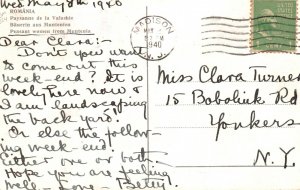 Wed. May 8th 1940
ROMÂNIA
Paysanne de la Valachie
Băserin aus Muntenien
Peasant women from Muntenia
MADISON
MAY
PM
1940
N.J.
Dear Clara:-
Don't you want
to come out this
week-end? It is
lovely here now &
I am landscaping
the back yard!
Or else the follow-
ing week-end.
Either one or both.
Hope you are feeling
well- Love- Betty!
Miss Clara Turner
15 Bobolink Rd
Yonkers
N.Y.